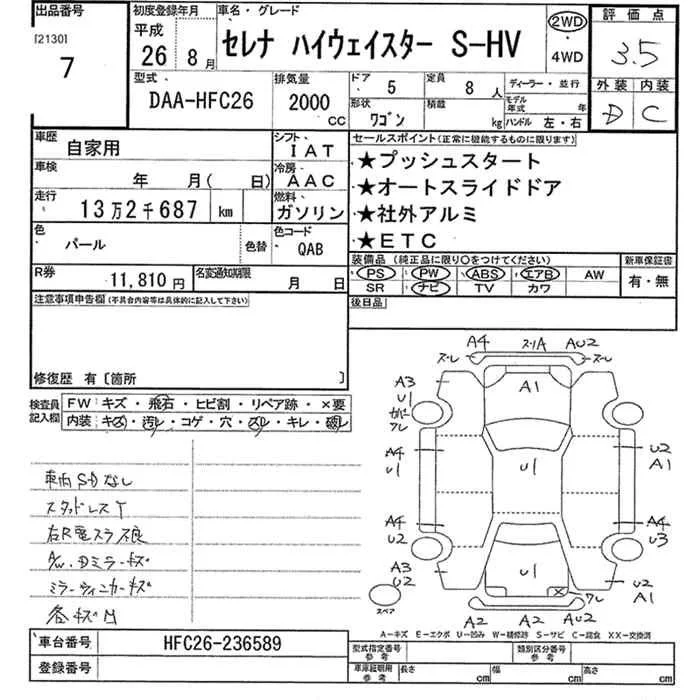 出品番号
[2130]
7
初度登録年月
平成
26年 8月
車名・グレード
セレナ ハイウェイスター S-HV
2WD
・
4WD
評価点
3.5
外装 内装
D C
型式
DAA-HFC26
排気量
2000
CC
ドア 5
定員 8人
ディーラー・並行
形状 ワゴン
積載 kg
モデル年式 年
ハンドル 左・右
車歴 自家用
シフト IAT
車検 年 月( 日)
冷房 AAC
走行 13万2千687 km
燃料 ガソリン
色 パール
色替
色コード QAB
R券 11,810円
名変通知期限 月 日
セールスポイント(正常に機能するものに限ります)
★プッシュスタート
★オートスライドドア
★社外アルミ
★ETC
装備品 (純正品に限り○をつけてください)
新車保証書
PS PW ABS エアB AW
SR ナビ TV カワ
有・無
後日品
注意事項申告欄(不具合内容等は具体的に記入して下さい)
修復歴 有〔箇所 〕
検査員記入欄
FW: キズ・飛石・ヒビ割・リペア跡・×要
内装: キズ・汚レ・コゲ・穴・ズレ・キレ・破レ
車内SDなし
スタッドレスT
右R電スラ不良
A/w、Dミラーキズ
ミラーウィンカーキズ
各キズM
A4 スリA AU2
ズレ ズレ
A1
A3
U1
カバー
ワレ
A4
U1
U1
U2
A1
A4
U2
A4
U3
A3
U2
U1
ワレ
U2
A1
スペア
A2 A2 AU2
A-キズ E-エクボ U-凹み W-補修跡 S-サビ C-腐食 XX-交換済
車台番号 HFC26-236589
登録番号
型式指定番号
参考
類別区分番号
参考
車庫証明用
参考
長さ cm 幅 cm 高さ cm